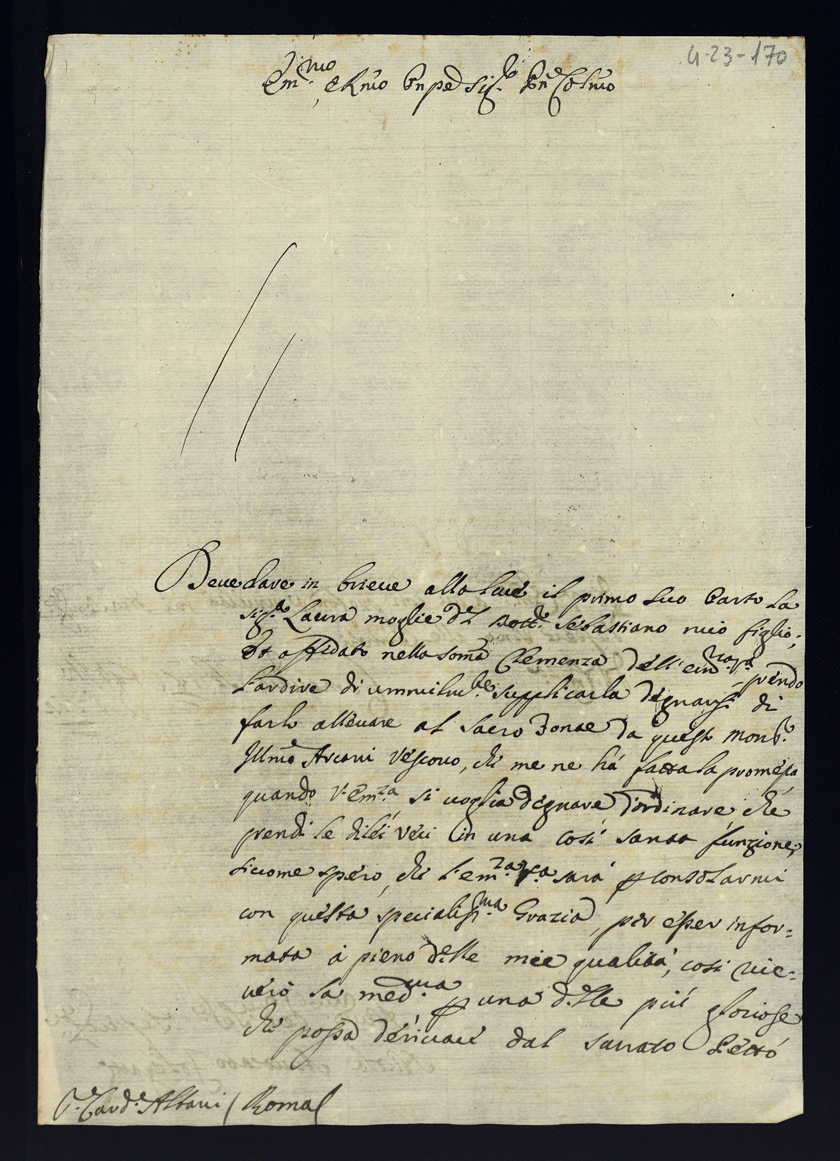 4-23-170
Em.mo e Rmo Sn pe Sig.r Pn Colmo
Deve dare in brieve alla luce il primo suo Parto la
Sig.ra Laura moglie del Dott.re Sebastiano mio figlio;
et affidato nella somã Clemenza dell'em.za v.ra prendo
l'ardire di ummilm.te supplicarla degnarsi di
farlo allevare al Sacro Fonte da questo Mons.r
Illmo Arcani Vescovo, che me ne há fatta la promessa
quando V. Em.za si voglia degnare d'ordinare, che
prendi le dilei veci in una così santa funzione,
siccome spero, che l'em.za v.ra sará p consolarmi
con questa specialiss.ma Grazia, per esser infor-
mata á pieno delle mie qualitá, così rice-
veró la med.ma p una delle piú gloriose
che possa derivare dal sacrato Petto
S.r Card.e Albani / Roma /